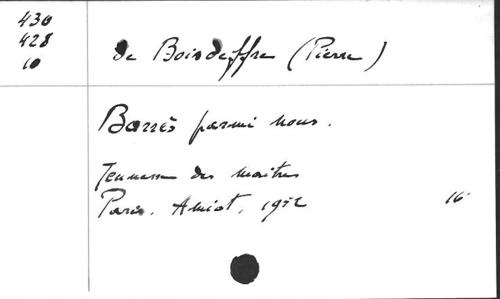 430
428
10
de Boisdeffre (Pierre)
Barrès parmi nous.
Jeunesse des maîtres
Paris. Amiot, 1952
16